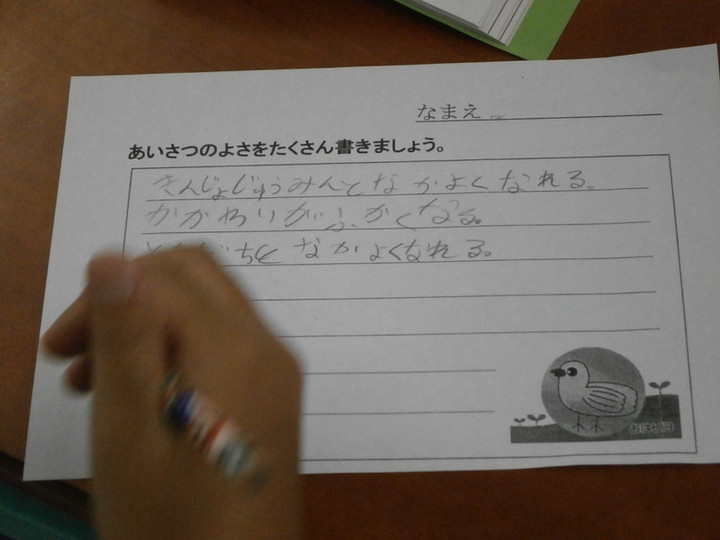 なまえ
あいさつのよさをたくさん書きましょう。
きんじょじゅうみんとなかよくなれる。
かかわりがふかくなる。
ともだちとなかよくなれる。